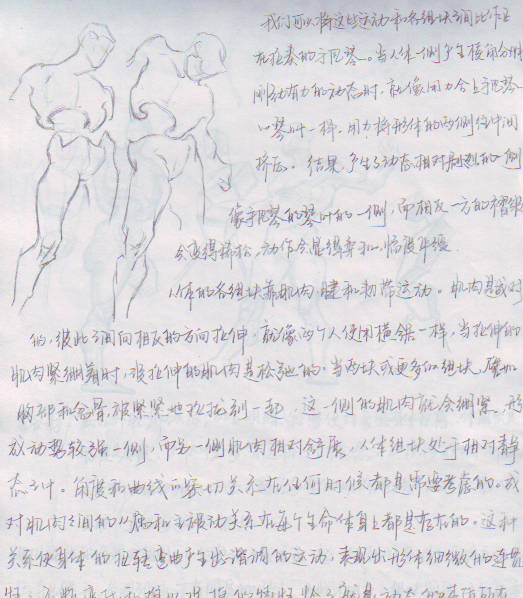 我们可以将这些运动和各组块之间比作正
在拉奏的手风琴。当人体一侧产生棱角分明
刚劲有力的动态时,就像用力合上手风琴
一样,用力将形体的两侧往中间
挤压。结果,产生了动态相对剧烈的一侧
像手风琴的琴叶的一侧,而相反一方的褶皱
会变得稀松,动作会显得柔和、幅度舒缓.
人体的各组块靠肌肉、腱和韧带运动。肌肉是成对
的,彼此之间向相反的方向拉伸,就像两个人使用横锯一样,当拉伸的
肌肉紧绷着时,被拉伸的肌肉是松弛的。当两块或更多的组块,譬如
胸部和骨被紧紧地拉拢到一起,这一侧的肌肉就会绷紧,形
成动势较强一侧,而另一侧肌肉相对舒展,人体组块处于相对静
态之中。角度和曲线的密切关系在任何时候都是需要考虑的。成
对肌肉之间的从属和主被动关系在每个生命体身上都是存在的。这种
关系使身体的扭转弯曲产生出谐调的运动,表现出形体细微的连贯